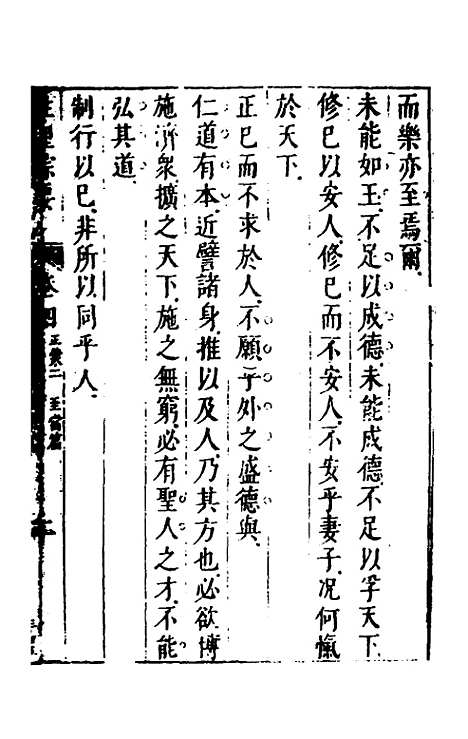 而樂亦至焉爾
未能如玉.不足以成德.未能成德.不足以孚天下
修巳以安人.修巳而不安人.不安乎妻子.况何愾
於天下.
正巳而不求於人.不願乎外之盛德與.
仁道有本.近譬諸身.推以及人.乃其方也必欲博
施濟衆.擴之天下.施之無窮.必有聖人之才.不能
弘其道.
制行以巳.非所以同乎人.
卷之四 正蒙二 至當篇